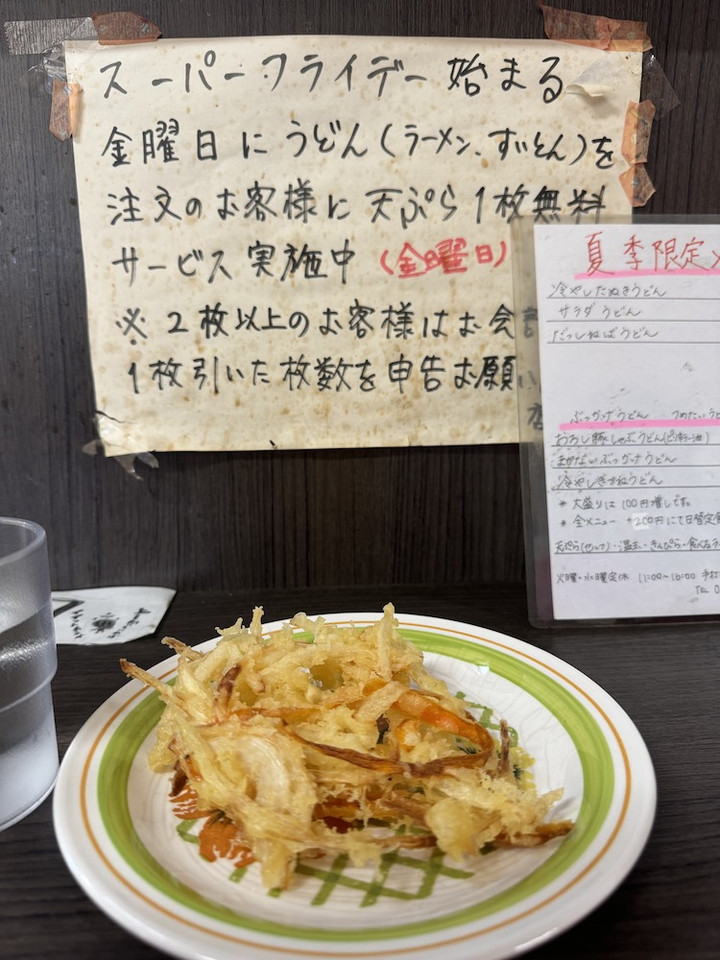 スーパーフライデー始まる
金曜日にうどん(ラーメン、すいとん)を
注文のお客様に天ぷら1枚無料
サービス実施中(金曜日)
※2枚以上のお客様はお会
1枚引いた枚数を申告お願い
夏季限定メ
冷やしたぬきうどん
サラダうどん
だっしねばうどん
ぶっかけうどん つめたいうど
おろし豚しゃぶうどん
まかないぶっかけうどん
冷やしきつねうどん
*大盛りは100円増しです。
*全メニュー +200円にて日替定食
火曜・水曜定休 11:00~16:00 手打
TEL 0